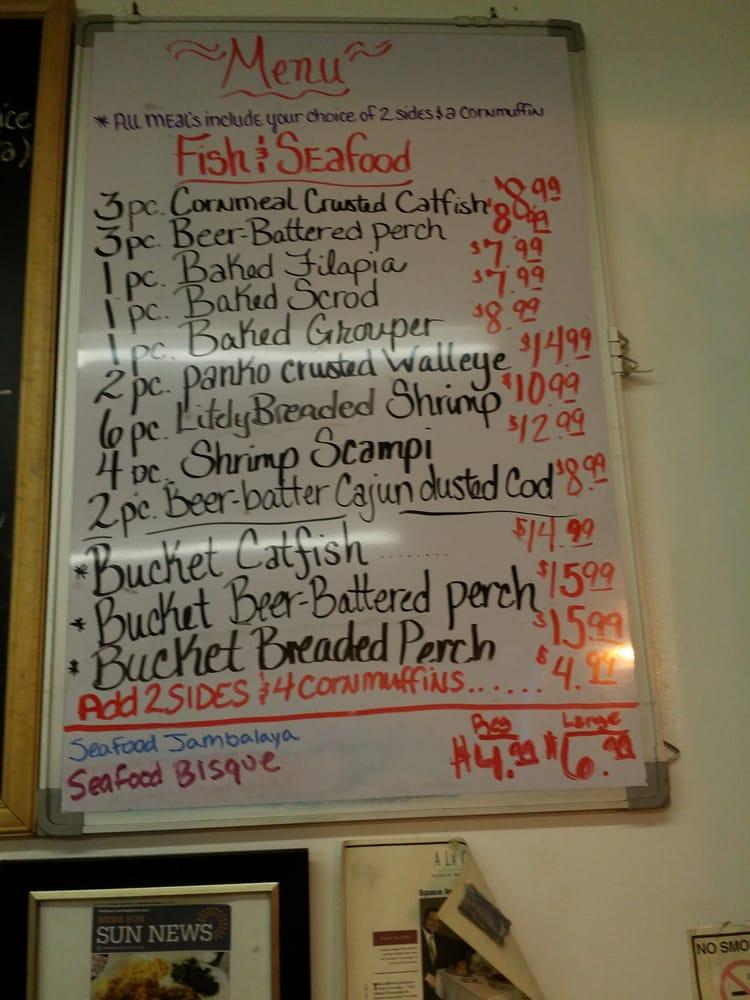 ice
a)
~Menu~
* All Meal's include your choice of 2 sides & a Cornmuffin
Fish & Seafood
3 pc. Cornmeal Crusted Catfish $8.99
3 pc. Beer-Battered perch 8.99
1 pc. Baked Tilapia $7.99
1 pc. Baked Scrod $7.99
1 pc. Baked Grouper $8.99
2 pc. panko crusted Walleye $14.99
6 pc. Litely Breaded Shrimp $10.99
4 pc. Shrimp Scampi $12.99
2 pc. Beer-batter Cajun dusted Cod $8.99
* Bucket Catfish ........ $14.99
* Bucket Beer-Battered perch $15.99
* Bucket Breaded Perch $15.99
Add 2 SIDES & 4 Cornmuffins...... $4.99
Reg Large
Seafood Jambalaya
Seafood Bisque $4.99 $6.99
NEWS SUN
SUN NEWS
A La C
Space
NO SMO